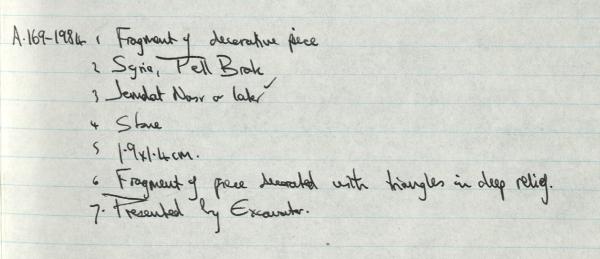 A.169-1984 1 Fragment of decorative piece
2 Syria, Tell Brak
3 Jemdat Nasr or later ✓
4 Stone
5 1.9x1.4cm.
6 Fragment of piece decorated with triangles in deep relief.
7. Presented by Excavator.